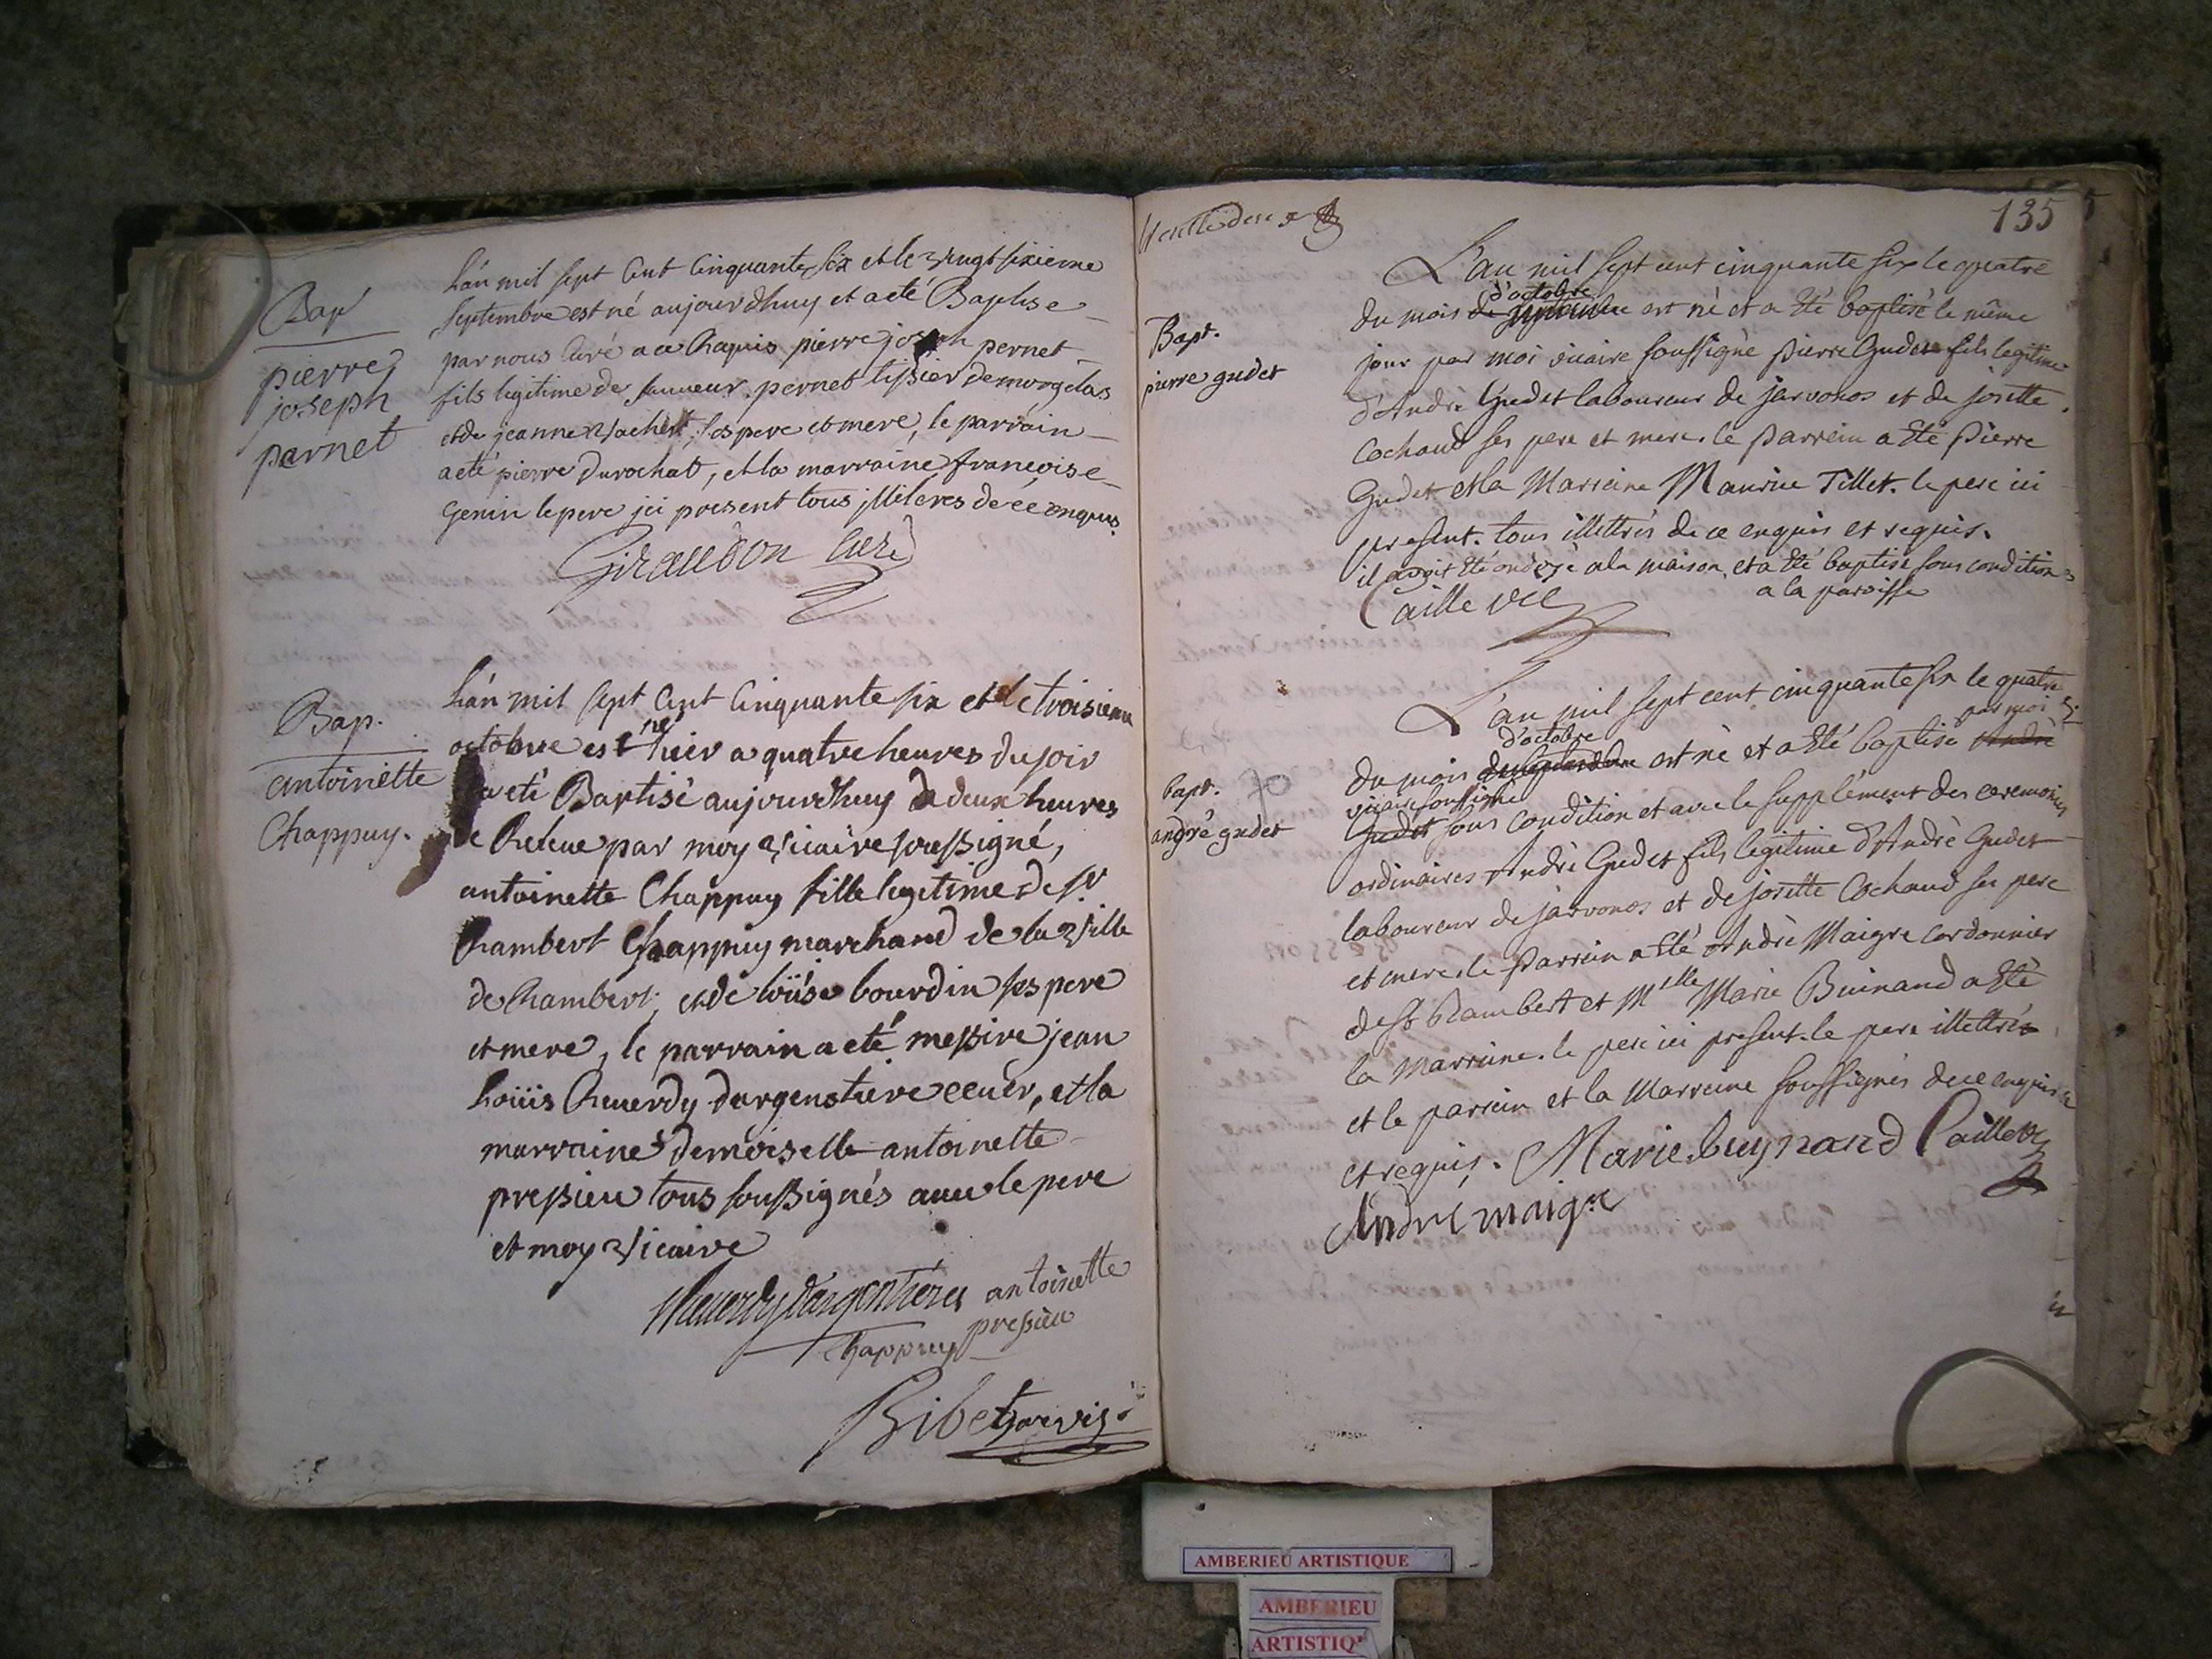 Bap
pierre
joseph
parnet
Lán mil sept Cent Cinquante six et le vingt sixieme
Septembre est né aujourdhuy et a eté Baptise
par nous Curé a ce Requis pierre joseph pernet
fils legitime de pernet tissier de mongelas
et de jeanne vachet, ses pere et mere, le parrain
a eté pierre Durochat, et la marraine francoise
Genin le pere jci present tous jlliteres de cé enquis
Giraudon Curé
Bap.
antoinette
Chappuy.
Lán mil sept Cent Cinquante six et le troisieme
octobre est né hier a quatre heures du soir
a eté Baptisé aujourdhuy a deux heures
de Releue par moy vicaire soussigné,
antoinette Chappuy fille legetime de Sr
Rambert Chappuy marchand de la ville
de Rambert, et de loüise bourdin ses pere
et mere, le parrain a eté messire jean
Loüis Reuerdy dargentiere ecuer, et la
marraine demoiselle antoinette
pressieu tous soussignés auec le pere
et moy vicaire
Reuerdy d'argentieres antoinette
Chappuy pressieu
Ribet
135
Bapt.
pierre gudet
L'an mil sept cent cinquante six le quatre
d'octobre
du mois de septembre est né et a eté baptisé le même
jour par moi vicaire soussigné pierre Gudet fils legitime
d'André Gudet laboureur de jarvonos et de josette
Cochaud ses pere et mere. le parrein a eté Pierre
Gudet et la Marreine Maurise Tillet. le pere ici
present. tous illettrés de ce enquis et requis.
il avoit eté ondoyé a la maison, et a eté baptisé sous condition
a la paroisse
Caille vic
bapt.
andré gudet
L'an mil sept cent cinquante six le quatre
d'octobre par moi
du mois de septembre est né et a eté baptisé André
vicaire soussigné
Gudet sous condition et avec le supplément des ceremonies
ordinaires André Gudet fils legitime d'André Gudet
laboureur de jarvonos et de josette Cochaud ses pere
et mere. le Parrein a eté André Maigre cordonnier
de St Rambert et Mlle Marie Buinand a eté
la Marreine. le pere ici present. le pere illettrés
et le parrein et la Marreine soussignés de ce enquis
et requis. Marie buynand Caille vic
André maigre
AMBERIEU ARTISTIQUE
AMBERIEU
ARTISTIQ